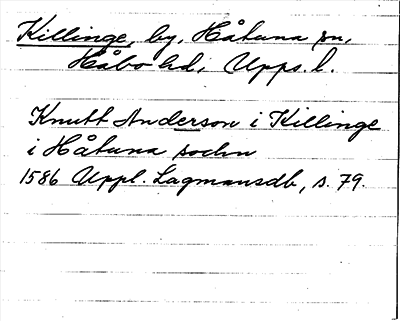 Killinge, by, Håtuna sn,
Håbo hd, Upps. l.
Knutt Anderson i Killinge
i Håtuna sochn
1586 Uppl. Lagmansdb, s. 79.